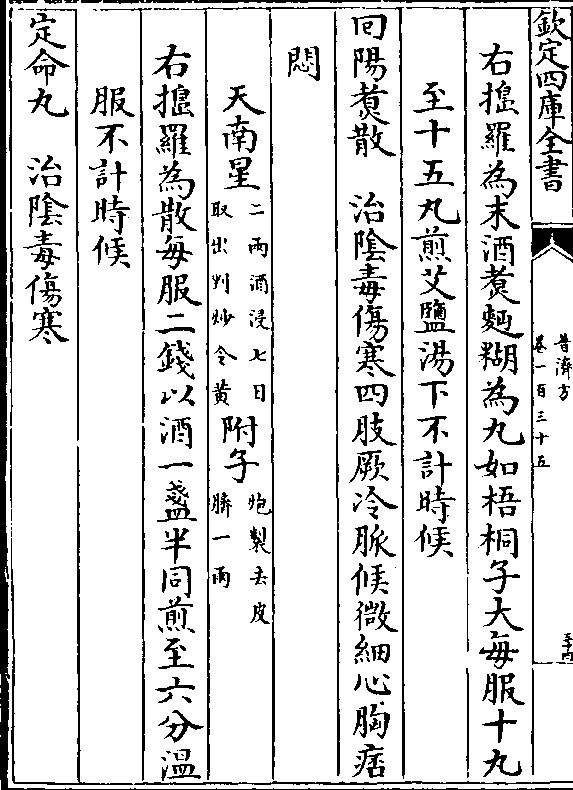 欽定四庫全書
普濟方
卷一百三十五
右搗羅為末酒煑麪糊為丸如梧桐子大每服十九
至十五丸煎艾鹽湯下不計時候
囘陽煑散　治陰毒傷寒四肢厥冷脈候微細心胸痞
悶
天南星二兩酒浸七日取出刋炒令黄附子炮製去皮臍一兩
右搗羅為散每服二錢以酒一盞半同煎至六分溫
服不計時候
定命丸　治陰毒傷寒